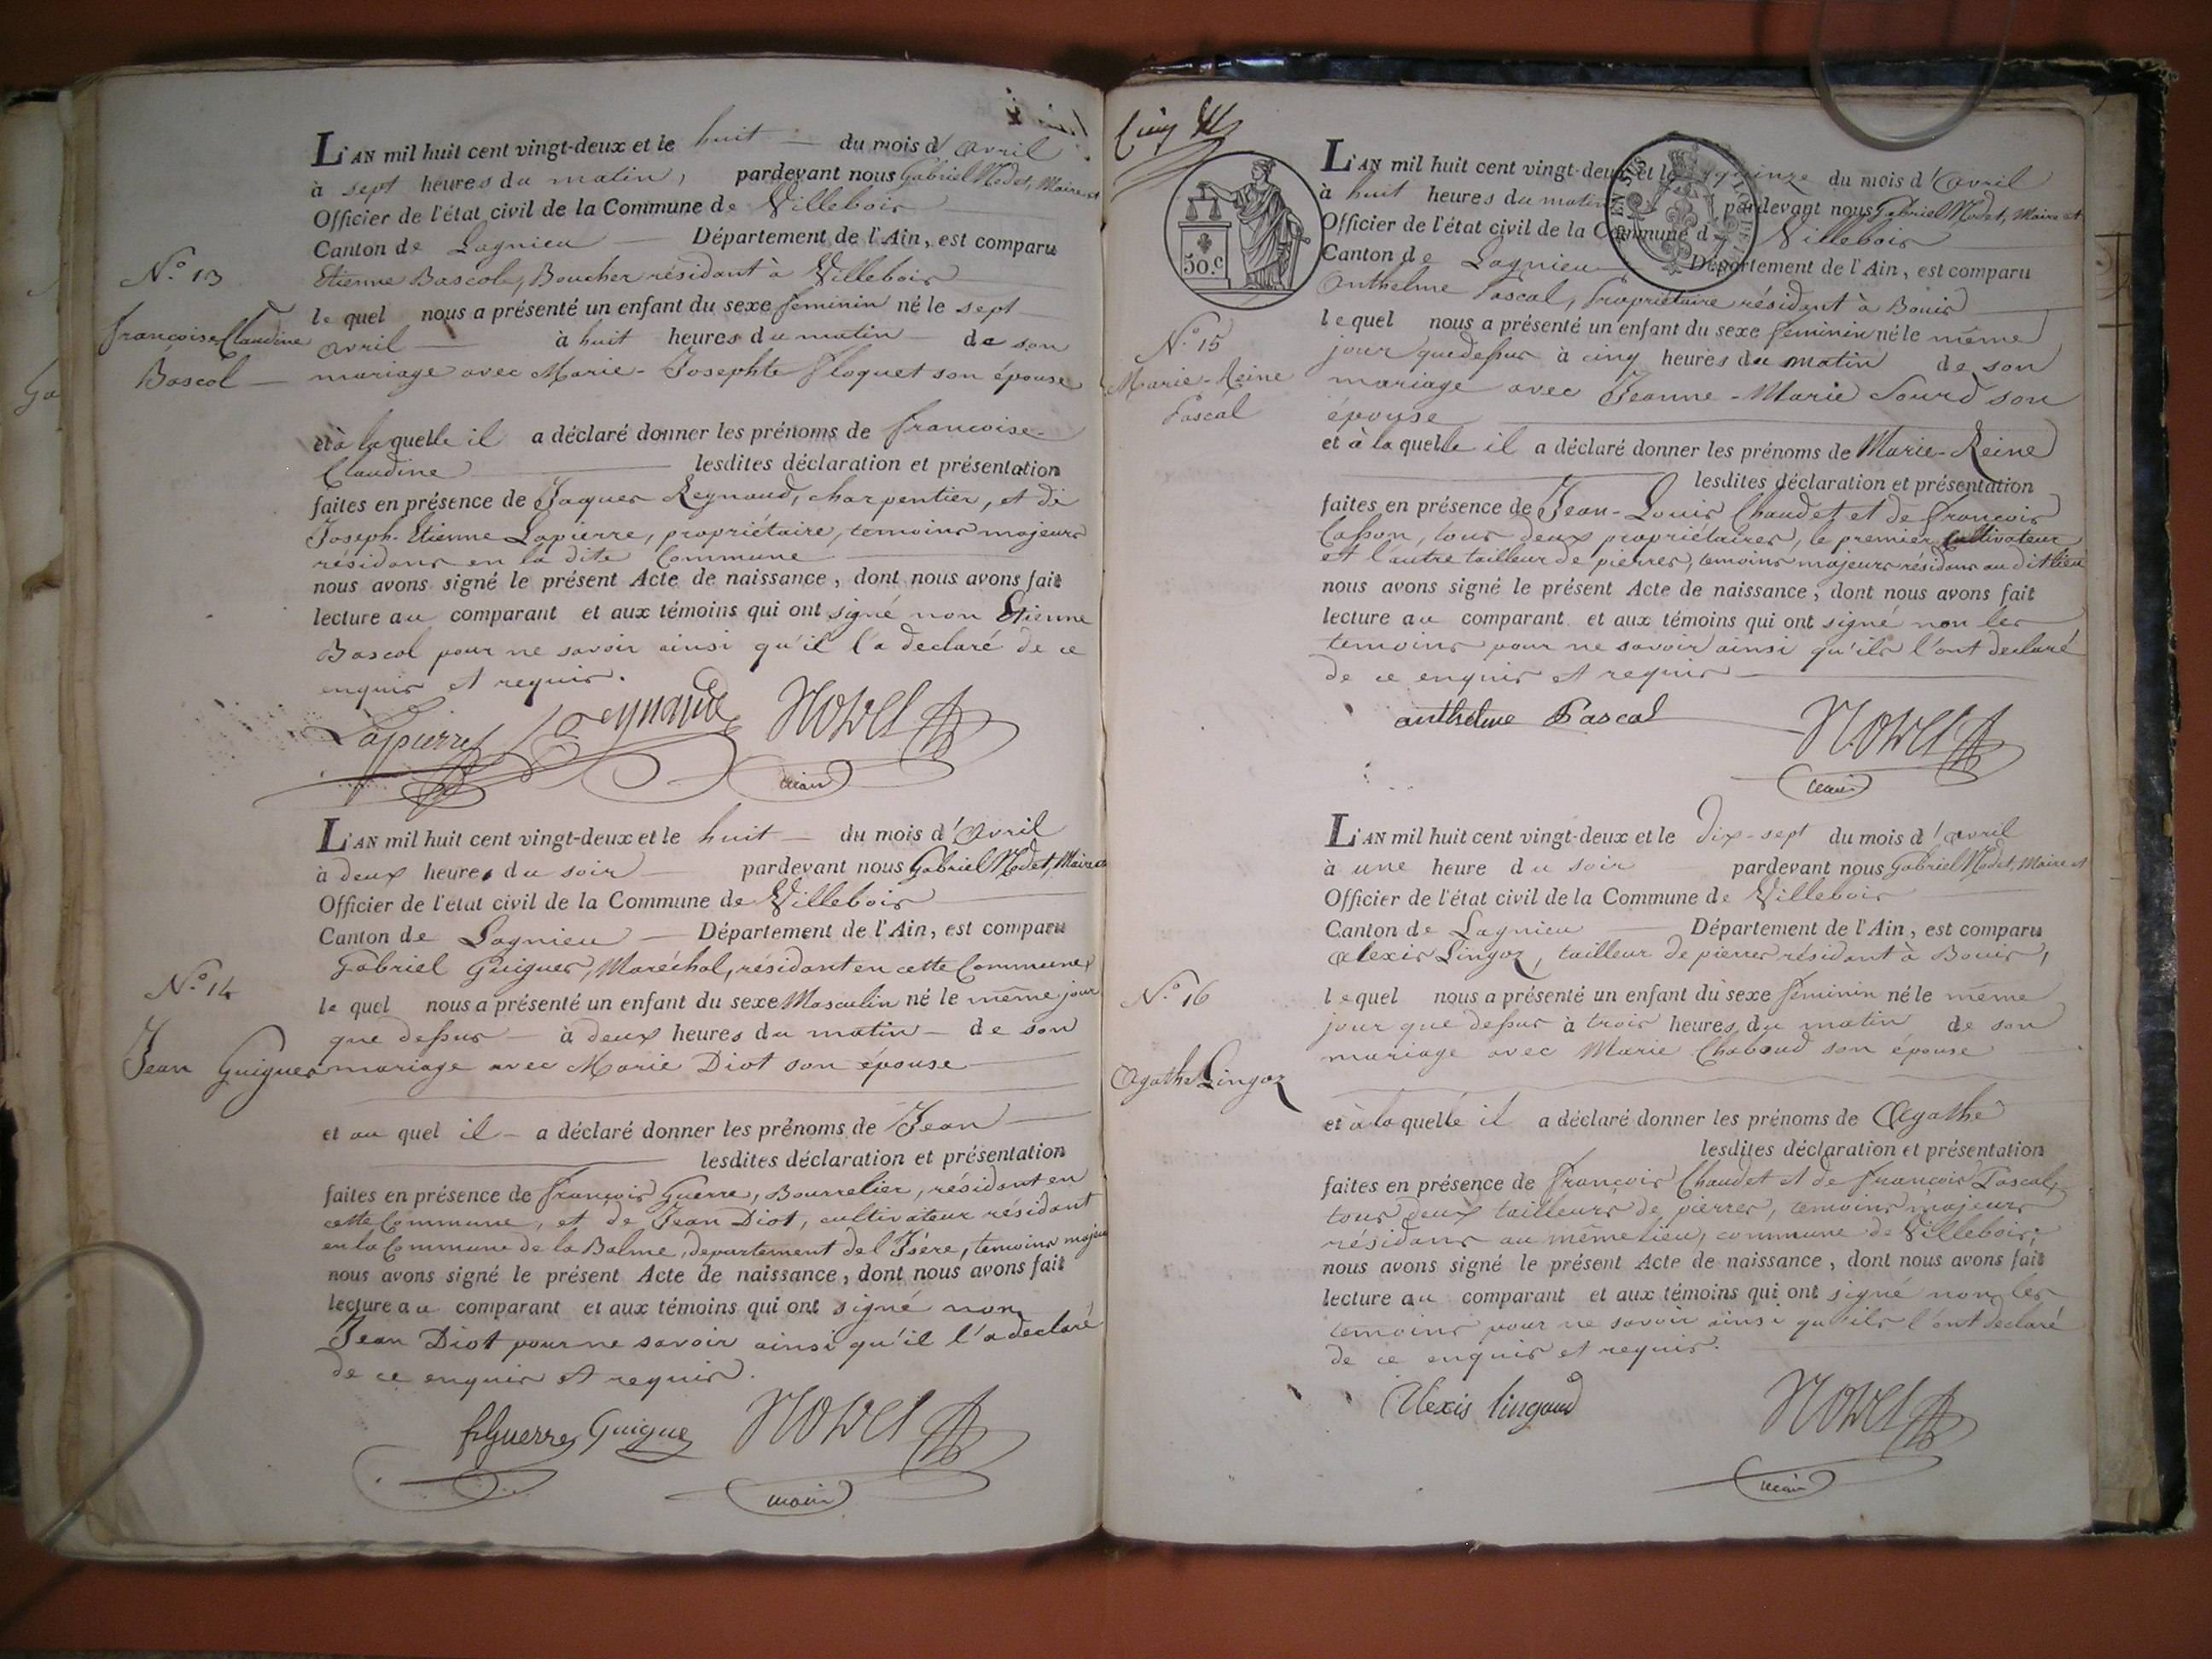 L'AN mil huit cent vingt-deux et le huit du mois d'avril
à sept heures du matin, pardevant nous Gabriel Modet, Maire et
Officier de l'état civil de la Commune de Villebois
Canton de Lagnieu Département de l'Ain, est comparu
Etienne Bascol, Boucher résidant à Villebois
N.o 13
le quel nous a présenté un enfant du sexe féminin né le sept
françoise Claudine
avril à huit heures du matin de son
Bascol
mariage avec Marie-Josephte Floquet son épouse
et à la quelle il a déclaré donner les prénoms de françoise-
Claudine lesdites déclaration et présentation
faites en présence de Jaques Reynaud, charpentier, et de
Joseph-Etienne Lapierre, propriétaire, temoins majeurs
résidans en la dite Commune
nous avons signé le présent Acte de naissance, dont nous avons fait
lecture au comparant et aux témoins qui ont signé non Etienne
Bascol pour ne savoir ainsi qu'il l'a declaré de ce
enquis et requis.
Lapierre Reynaud Modet
maire
L'AN mil huit cent vingt-deux et le huit du mois d'avril
à deux heures du soir pardevant nous Gabriel Modet, Maire et
Officier de l'état civil de la Commune de Villebois
Canton de Lagnieu Département de l'Ain, est comparu
Gabriel Guigues, Maréchal, résidant en cette Commune,
N.o 14
le quel nous a présenté un enfant du sexe Masculin né le même jour
que dessus à deux heures du matin de son
Jean Guigues
mariage avec Marie Diot son épouse
et au quel il a déclaré donner les prénoms de Jean
lesdites déclaration et présentation
faites en présence de françois Guerre, Bourrelier, résidant en
cette Commune, et de Jean Diot, cultivateur résidant
en la Commune de la Balme, departement de l'Isère, temoins majeurs
nous avons signé le présent Acte de naissance, dont nous avons fait
lecture au comparant et aux témoins qui ont signé non
Jean Diot pour ne savoir ainsi qu'il l'a declaré
de ce enquis et requis.
fGuerre Guigue Modet
maire
Cinq
50.c
L'AN mil huit cent vingt-deux et le quinze du mois d'avril
à huit heures du matin pardevant nous Gabriel Modet, Maire et
Officier de l'état civil de la Commune de Villebois
Canton de Lagnieu Département de l'Ain, est comparu
Anthelme Pascal, propriétaire résidant à Bouis
N.o 15
le quel nous a présenté un enfant du sexe féminin né le même
jour que dessus à cinq heures du matin de son
Marie-Reine
Pascal
mariage avec Jeanne-Marie Sourd son
épouse
et à la quelle il a déclaré donner les prénoms de Marie-Reine
lesdites déclaration et présentation
faites en présence de Jean-Louis Chaudet et de françois
Casson, tous deux propriétaires, le premier Cultivateur
et l'autre tailleur de pierres, temoins majeurs résidans au dit lieu
nous avons signé le présent Acte de naissance, dont nous avons fait
lecture au comparant et aux témoins qui ont signé non les
temoins pour ne savoir ainsi qu'ils l'ont declaré
de ce enquis et requis
anthelme Pascal Modet
maire
L'AN mil huit cent vingt-deux et le dix-sept du mois d'avril
à une heure du soir pardevant nous Gabriel Modet, Maire et
Officier de l'état civil de la Commune de Villebois
Canton de Lagnieu Département de l'Ain, est comparu
Alexis Lingoz, tailleur de pierres résidant à Bouis,
N.o 16
le quel nous a présenté un enfant du sexe féminin né le même
jour que dessus à trois heures du matin de son
mariage avec Marie Chaboud son épouse
Agathe Lingoz
et à la quelle il a déclaré donner les prénoms de Agathe
lesdites déclaration et présentation
faites en présence de françois Chaudet et de françois Pascal,
tous deux tailleurs de pierres, temoins majeurs
résidans au même lieu, commune de Villebois,
nous avons signé le présent Acte de naissance, dont nous avons fait
lecture au comparant et aux témoins qui ont signé non les
temoins pour ne savoir ainsi qu'ils l'ont declaré
de ce enquis et requis.
Alexis lingaud Modet
maire